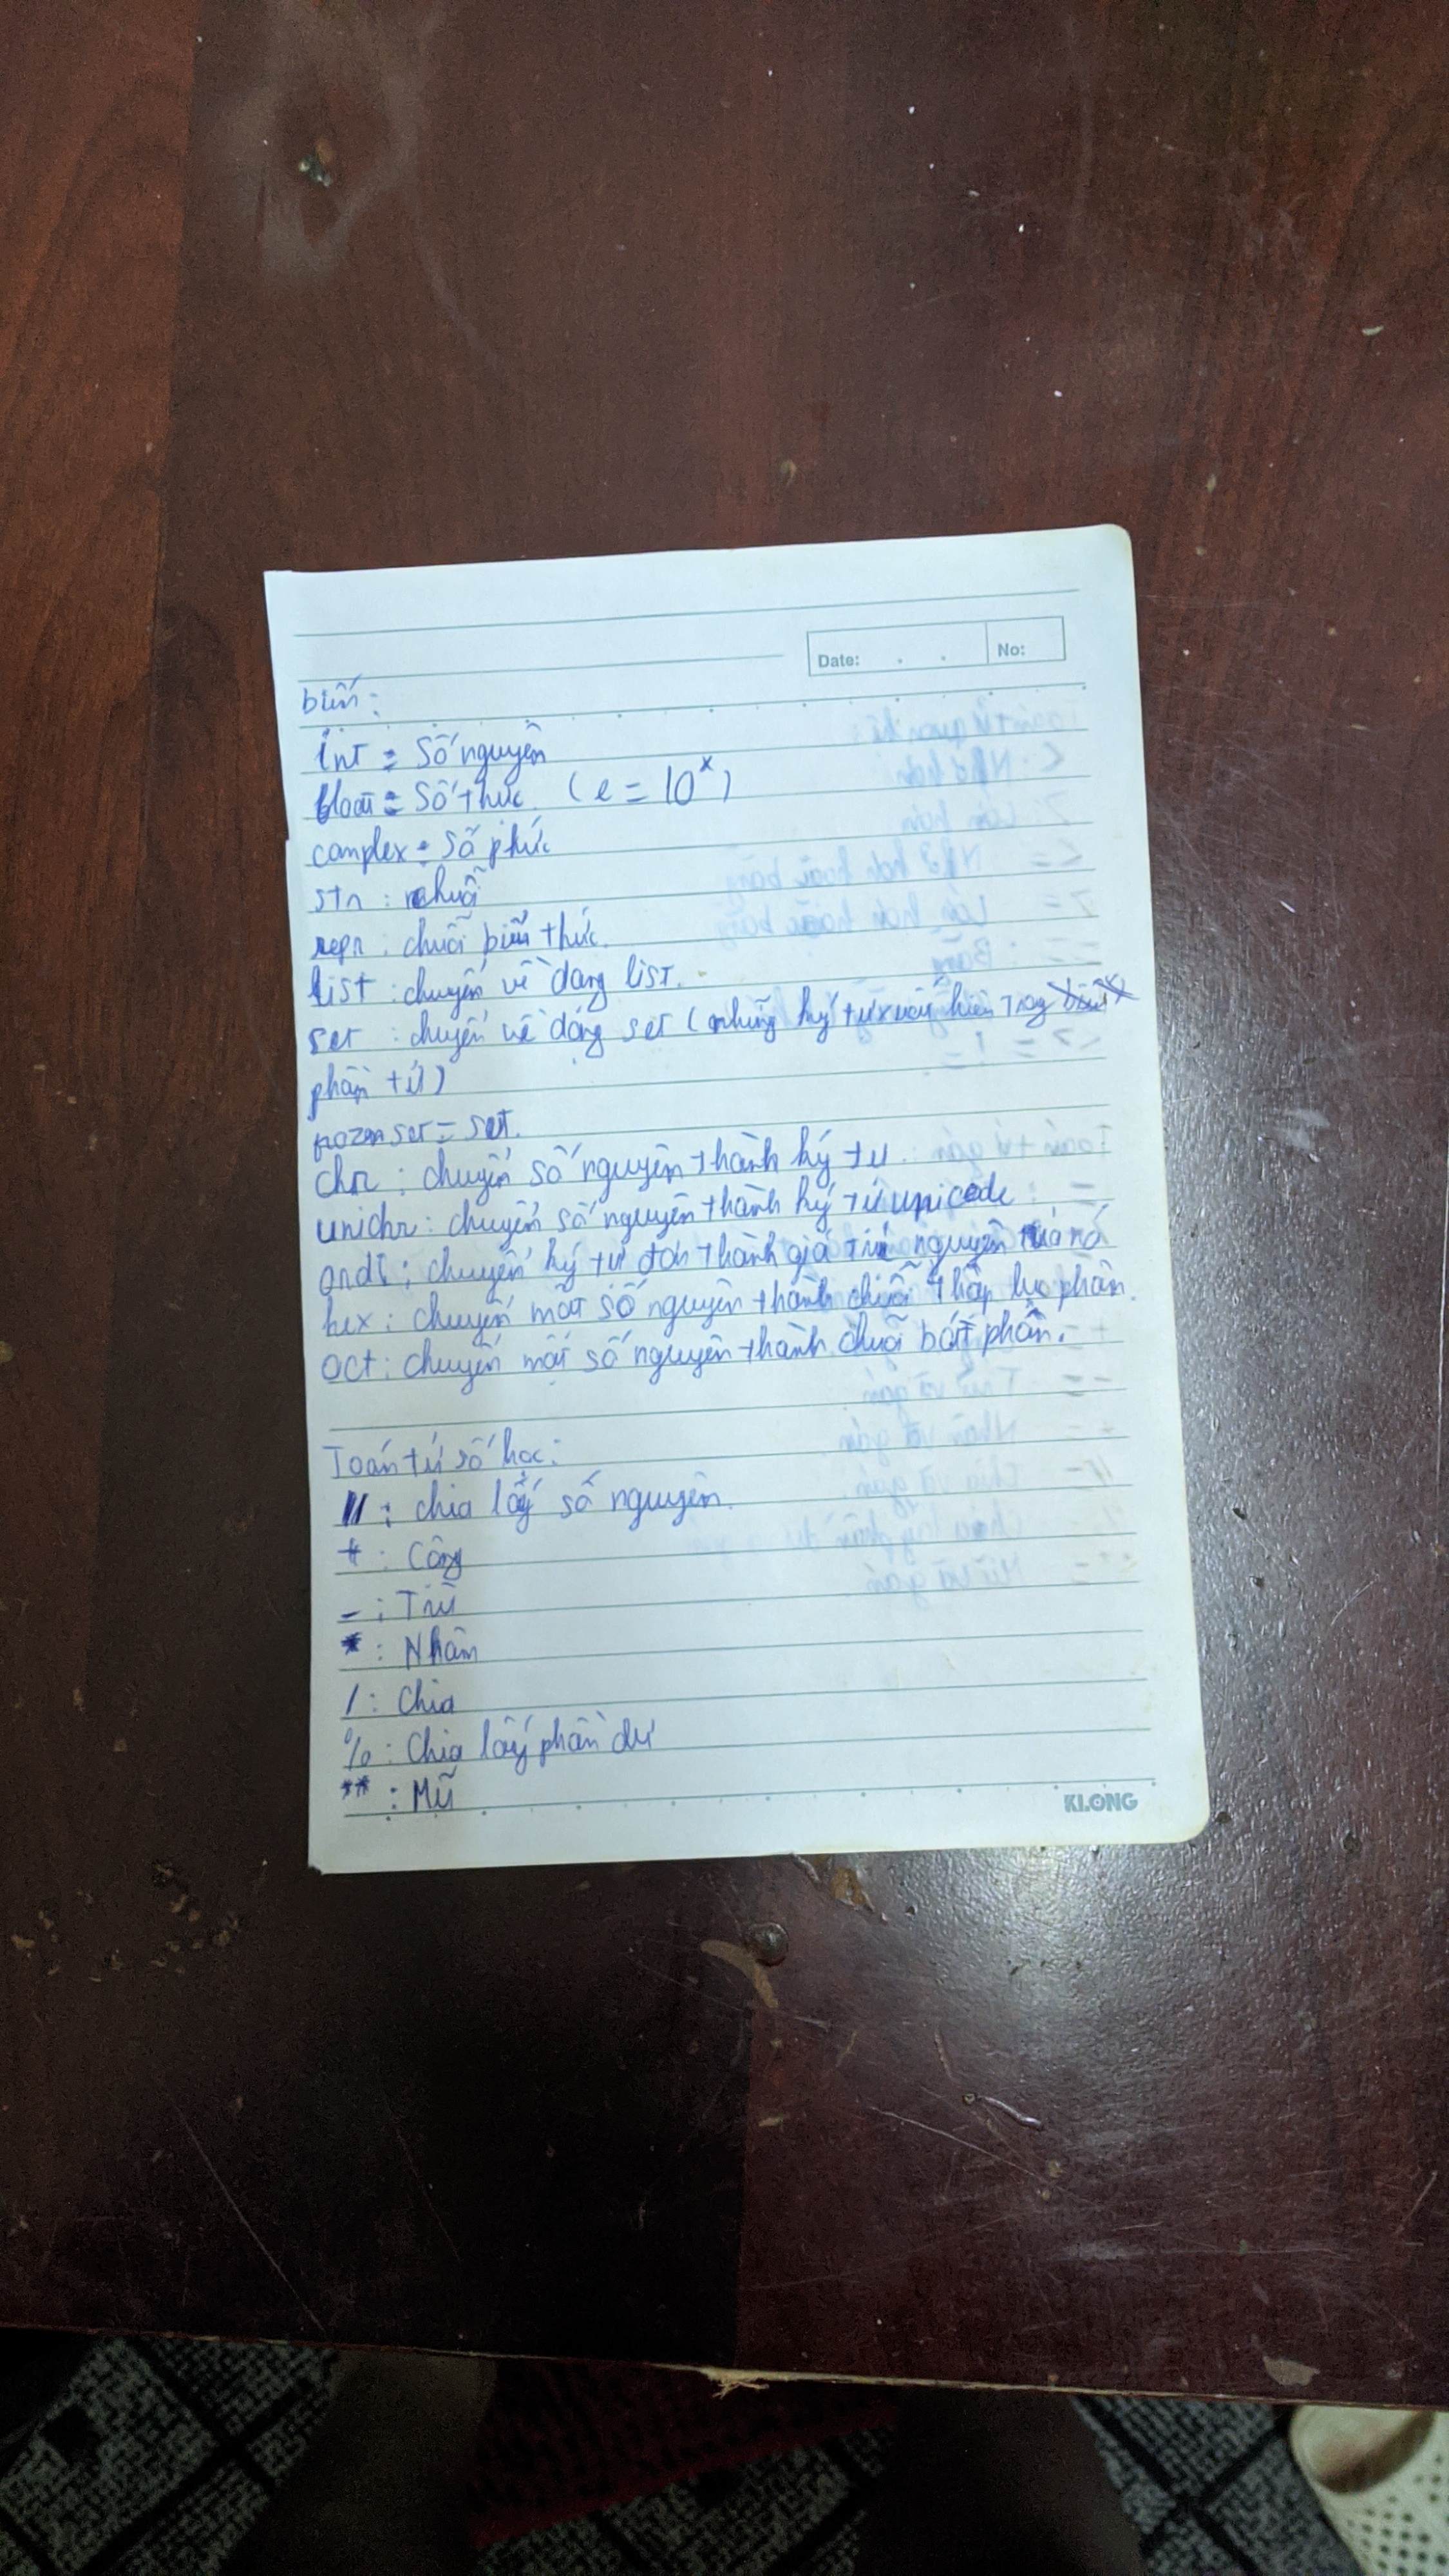 Date: . . No:
biến:
int : Số nguyên
float : Số thực. (e = 10^x)
complex : Số phức
str : chuỗi
repr : chuỗi biểu thức.
list : chuyển về dạng list.
set : chuyển về dạng set (những ký tự xuất hiện trong
phần tử)
set = set.
chr : chuyển số nguyên thành ký tự.
unichr : chuyển số nguyên thành ký tự unicode
: chuyển ký tự đơn thành giá trị nguyên của nó
hex : chuyển một số nguyên thành chuỗi thập lục phân.
oct : chuyển một số nguyên thành chuỗi bát phân.
Toán tử số học:
// : chia lấy số nguyên.
+ : Cộng
- : Trừ
* : Nhân
/ : Chia
% : Chia lấy phần dư
** : Mũ
KLONG